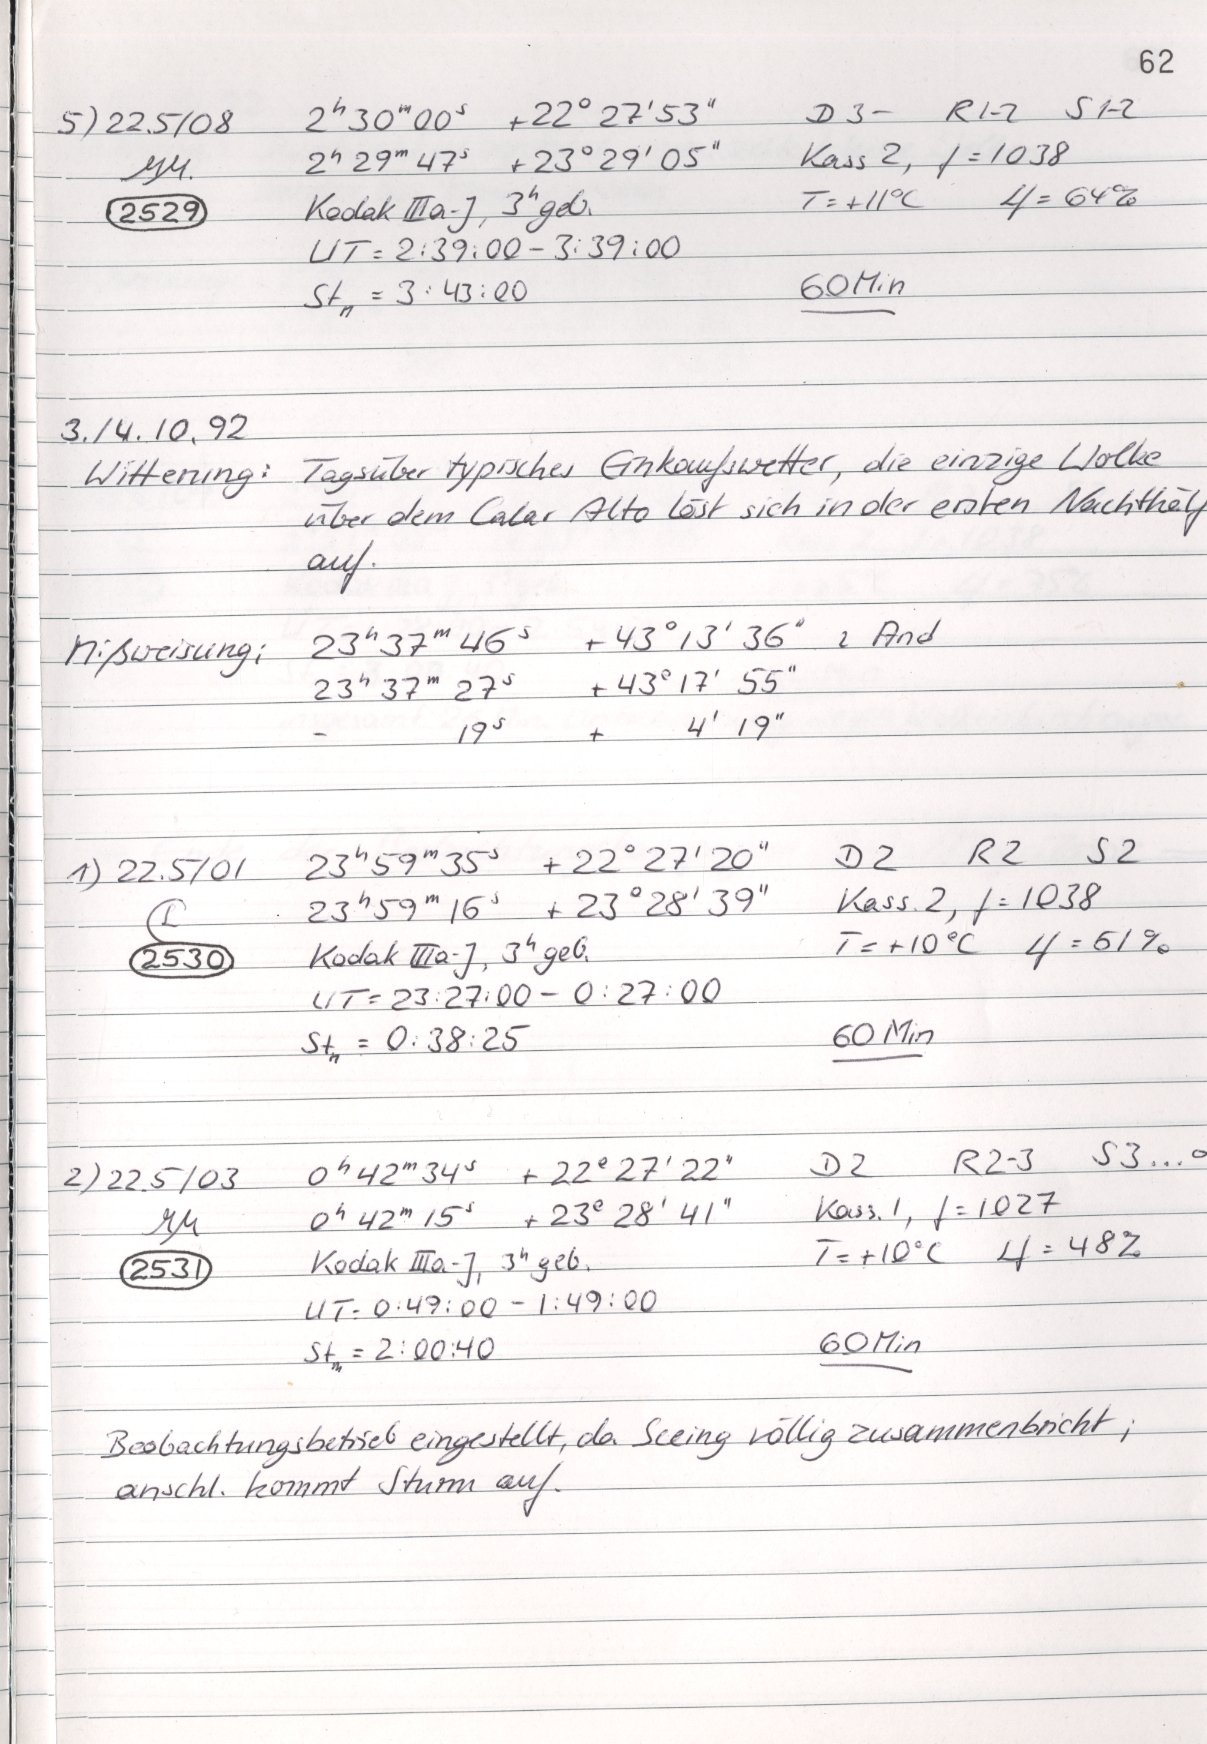 62
5) 22.5/08 2ʰ30ᵐ00ˢ +22°27'53" D3- R1-2 S1-2
2ʰ29ᵐ47ˢ +23°29'05" Kass 2, f=1038
2529 Kodak IIIa-J, 3ʰ geb. T=+11°C φ=64%
UT=2:39:00-3:39:00
Stₙ=3:43:00 60Min
3./4.10.92
Witterung: Tagsüber typisches Einkaufswetter, die einzige Wolke
über dem Calar Alto löst sich in der ersten Nachthälf
auf.
Mißweisung: 23ʰ37ᵐ46ˢ +43°13'36" ι And
23ʰ37ᵐ27ˢ +43°17'55"
- 19ˢ + 4'19"
1) 22.5/01 23ʰ59ᵐ35ˢ +22°27'20" D2 R2 S2
23ʰ59ᵐ16ˢ +23°28'39" Kass.2, f=1038
2530 Kodak IIIa-J, 3ʰ geb. T=+10°C φ=51%
UT=23:27:00-0:27:00
Stₙ=0:38:25 60Min
2) 22.5/03 0ʰ42ᵐ34ˢ +22°27'22" D2 R2-3 S3...
0ʰ42ᵐ15ˢ +23°28'41" Kass.1, f=1027
2531 Kodak IIIa-J, 3ʰ geb. T=+10°C φ=48%
UT=0:49:00-1:49:00
Stₙ=2:00:40 60Min
Beobachtungsbetrieb eingestellt, da Seeing völlig zusammenbricht;
anschl. kommt Sturm auf.